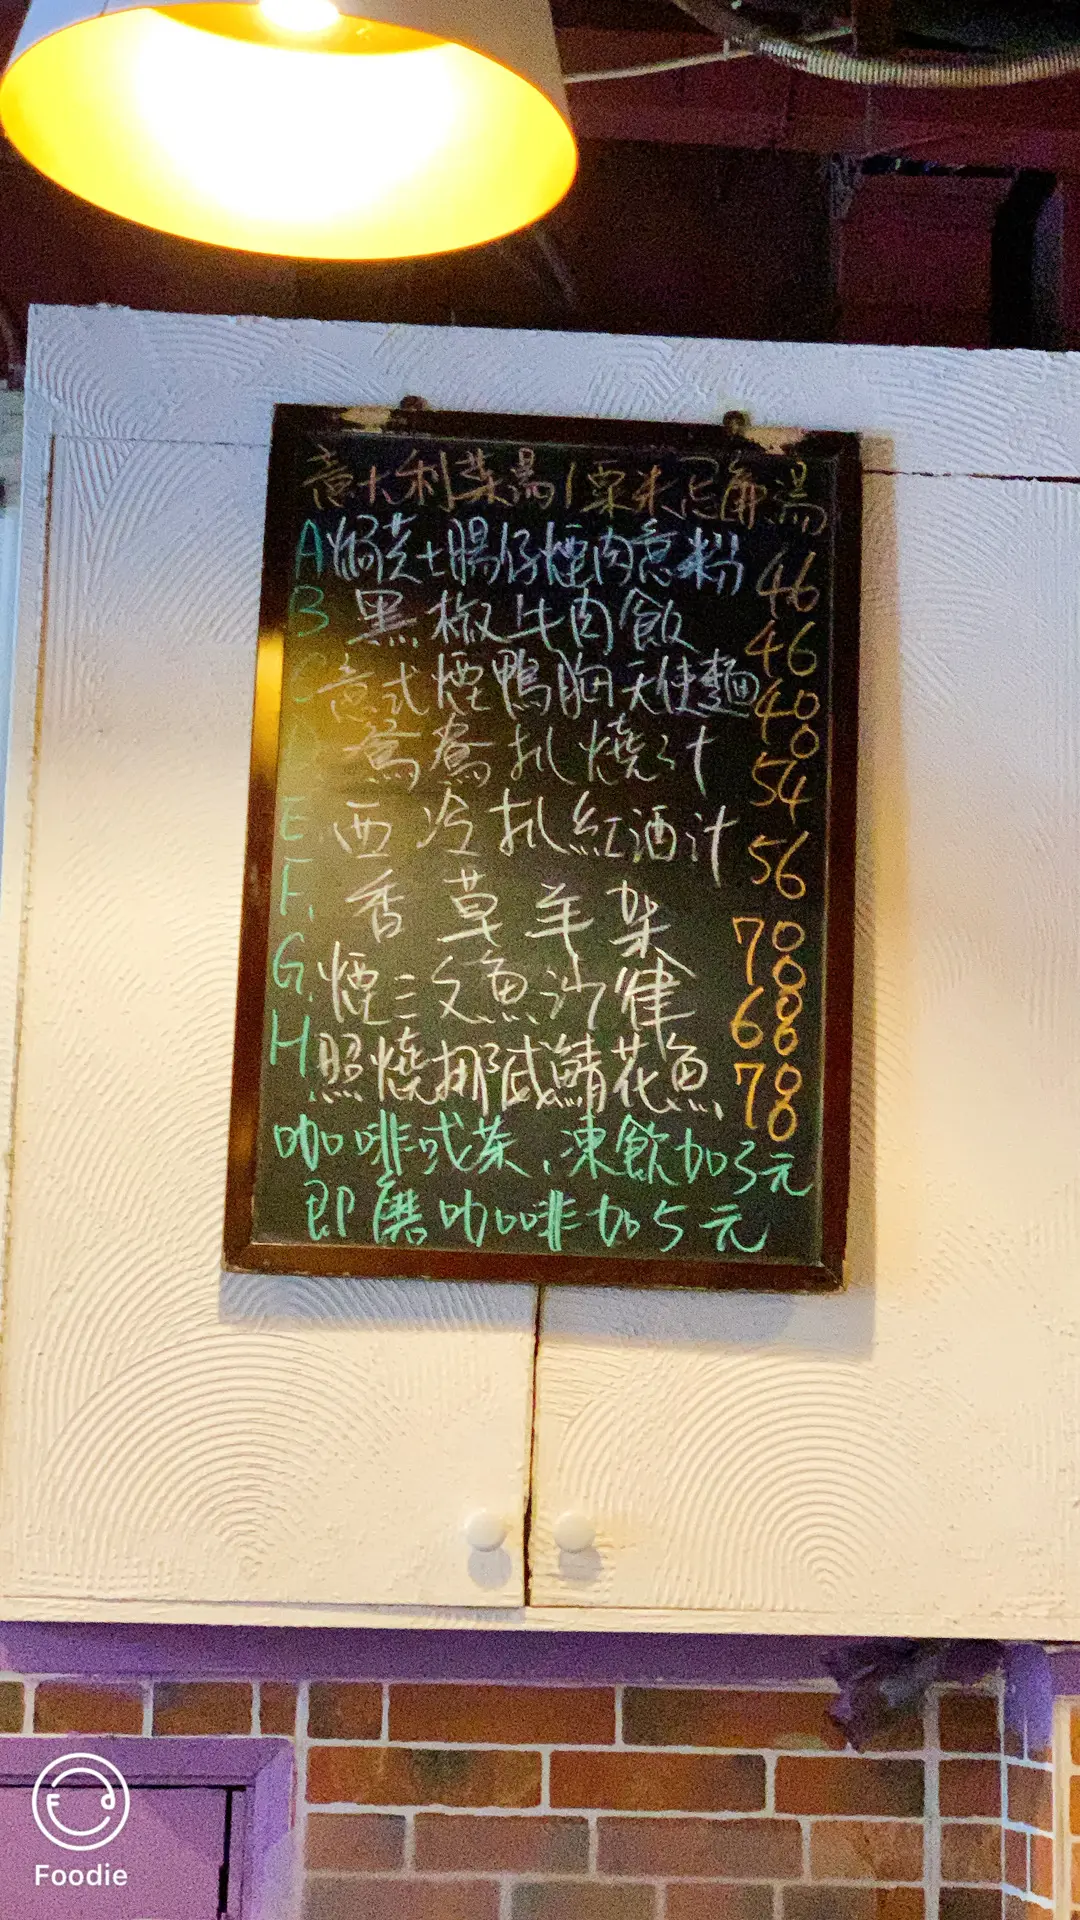 意大利菜湯/粟米忌廉湯
A 焗芝士腸仔煙肉意粉 46
B 黑椒牛肉飯 46
C 意式煙鴨胸天使麵 40
D 鴛鴦扒燒汁 54
E. 西冷扒紅酒汁 56
F. 香草羊架 70
G. 煙三文魚沙律 68
H. 照燒挪威鯖花魚 78
咖啡或茶、凍飲加3元
即磨咖啡加5元
Foodie